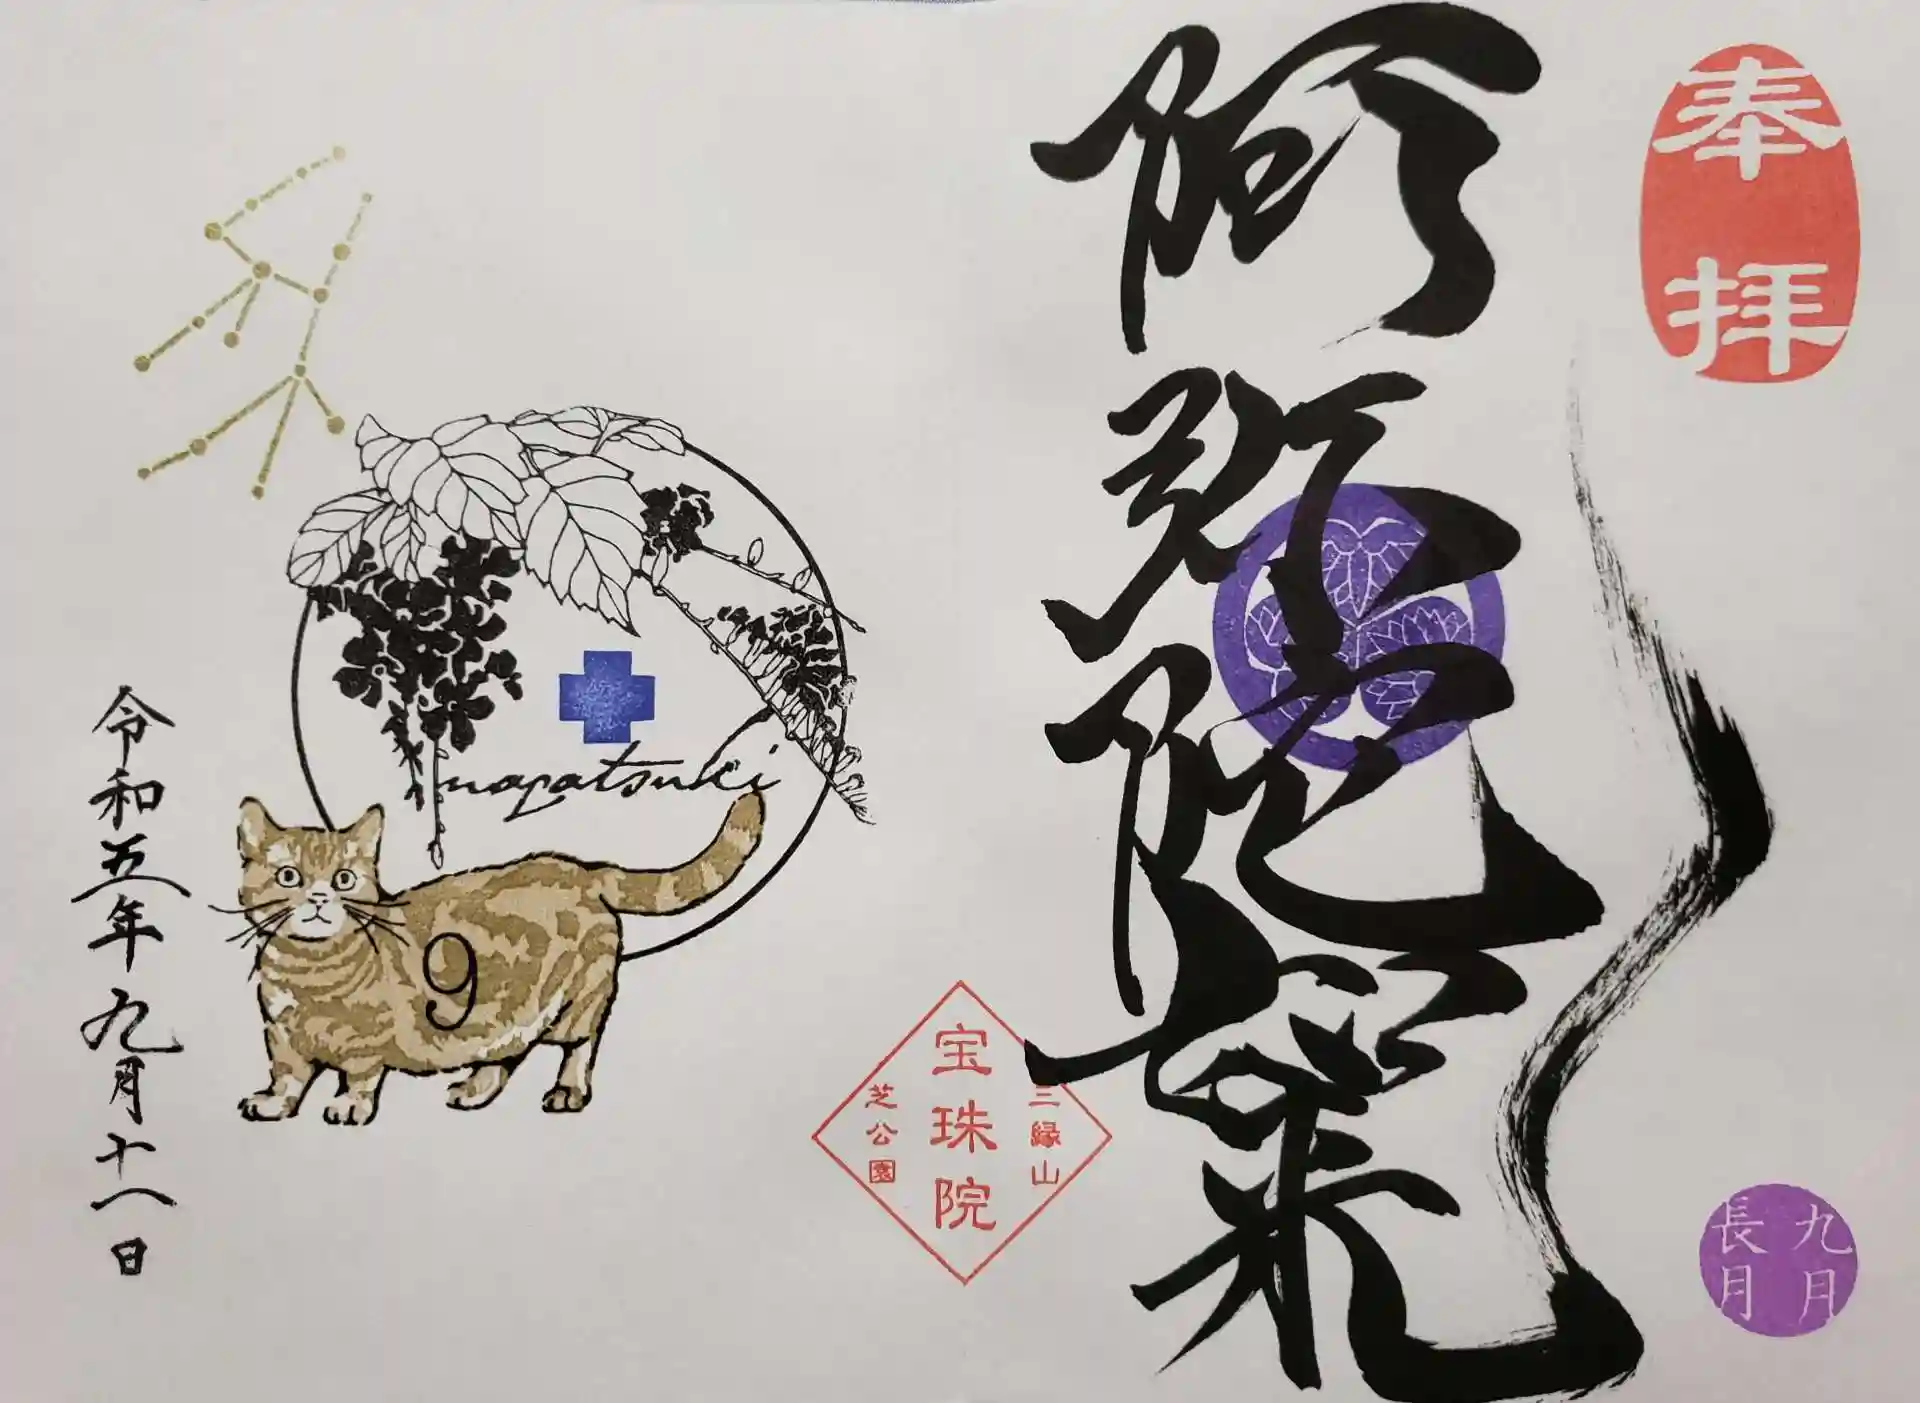 奉拝
阿弥陀如来
九月
長月
三縁山
宝珠院
芝公園
nagatsuki
9
令和五年九月十八日